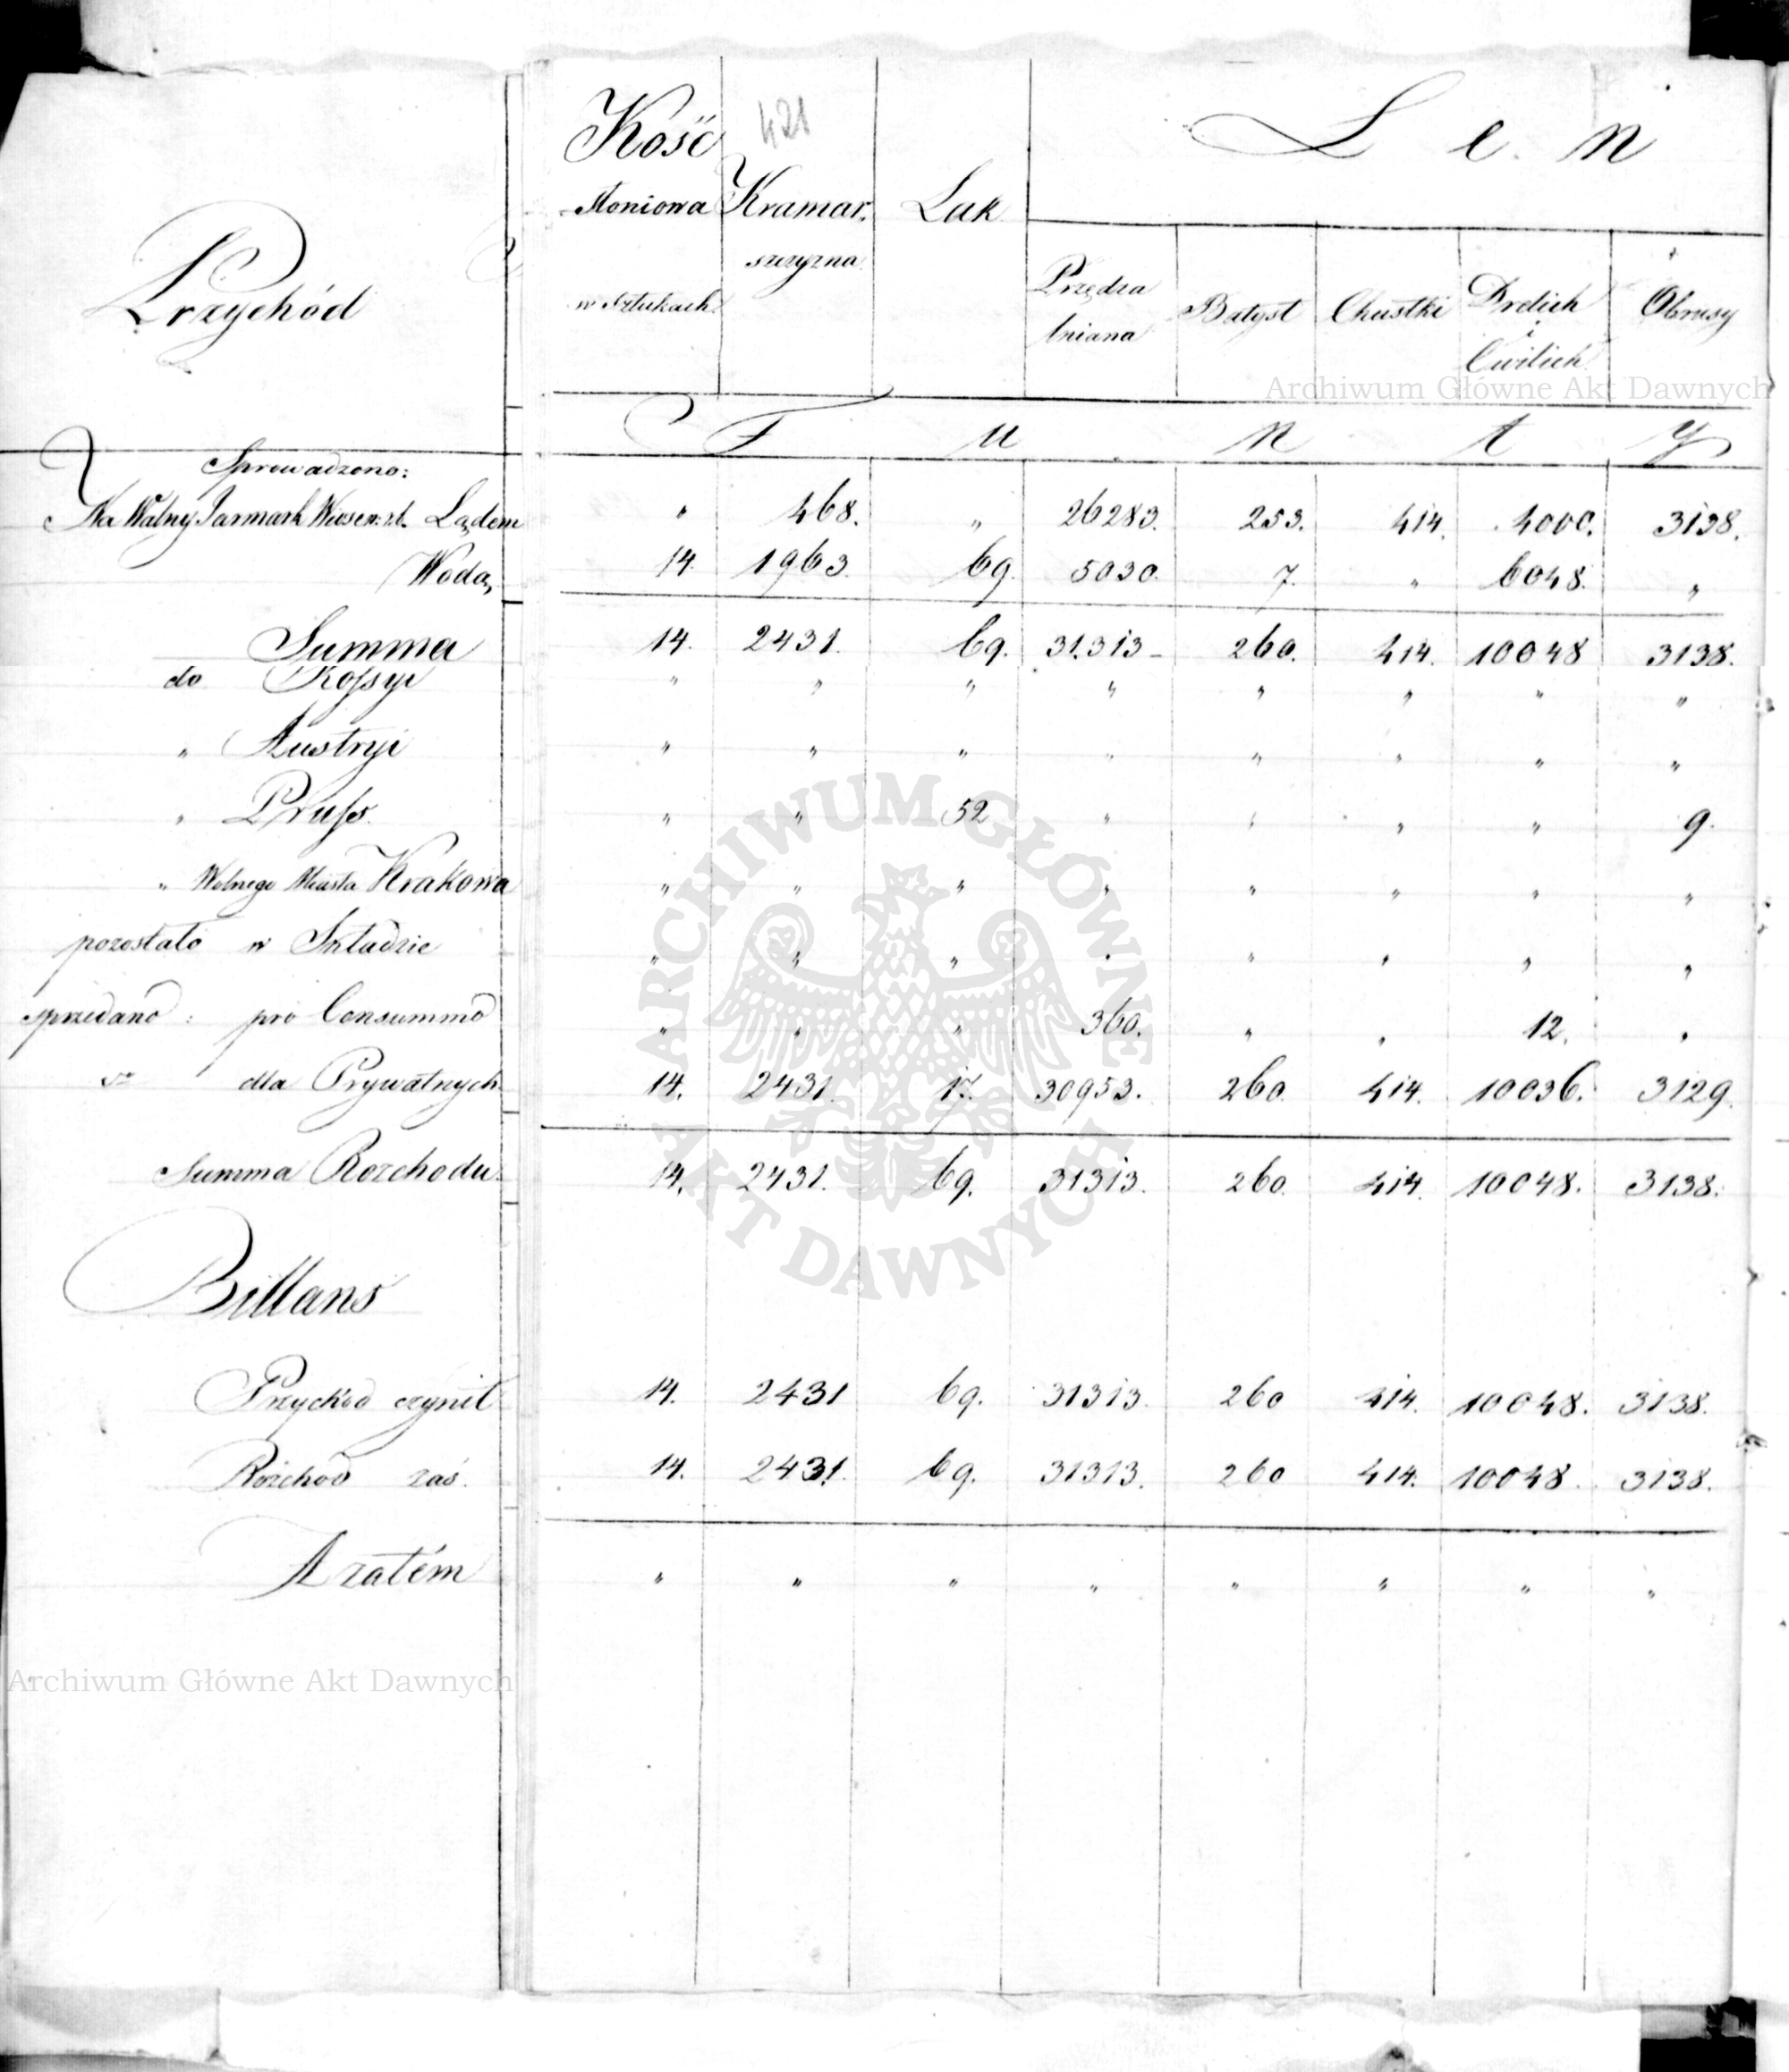 Kość 421 L e n
Słoniowa Kramar. Lak
szczyzna
w Sztukach
Przychód
Przędza Batyst Chustki Drelich Obrusy
lniana i
Cwilich
Archiwum Główne Akt Dawnych
F u n t y
Sprowadzono:
Na Walny Jarmark Wiosen: r.b. Lądem " 468. " 26283. 253. 414. 4000. 3138.
Wodą 14. 1963. 69. 5030. 7. " 6048. "
Summa 14. 2431. 69. 31.313 260. 414. 10048 3138.
do Rossyi " " " " " " " "
" Austryi " " " " " " " "
" Pruss. " " 52 " " " " 9.
" Wolnego Miasta Krakowa " " " " " " " "
pozostało w Składzie " " " " " " " "
sprzedano: pro Consummo " " " 360. " " 12. "
dla Prywatnych 14. 2431. 17. 30953. 260. 414. 10036. 3129.
Summa Rozchodu 14. 2431. 69. 31313. 260. 414. 10048. 3138.
Billans
Przychód czynił 14. 2431 69. 31313. 260 414. 10048. 3138.
Rozchód zaś. 14. 2431. 69. 31313. 260 414. 10048. 3138.
A zatém " " " " " " " "
ARCHIWUM GŁÓWNE AKT DAWNYCH
Archiwum Główne Akt Dawnych